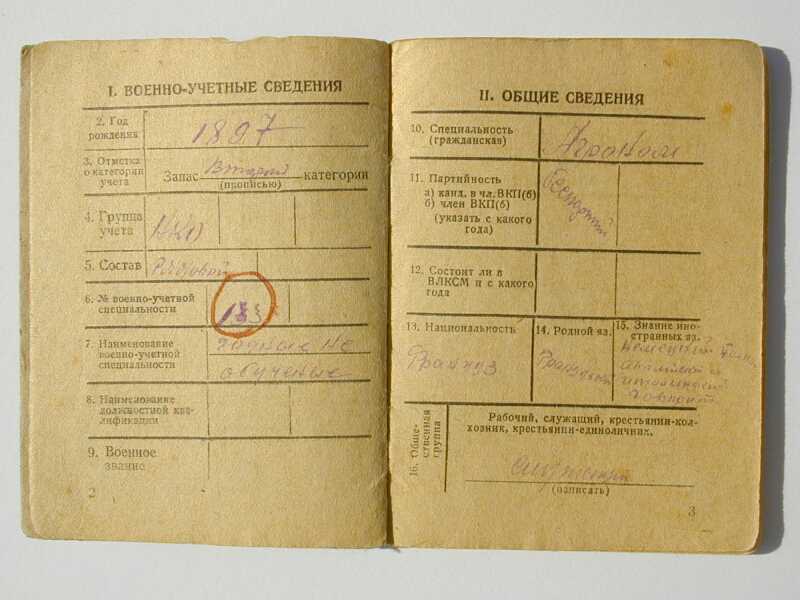 I. ВОЕННО-УЧЕТНЫЕ СВЕДЕНИЯ
2. Год
рождения
1897
3. Отметка
о категории
учета
Запас Второй категории
(прописью)
4. Группа
учета
5. Состав Рядовой
6. № военно-учетной
специальности
133
7. Наименование
военно-учетной
специальности
годные не
обученные
8. Наименование
должностной ква-
лификации
9. Военное
звание
2
II. ОБЩИЕ СВЕДЕНИЯ
10. Специальность
(гражданская)
11. Партийность
а) канд. в чл. ВКП(б)
б) член ВКП(б)
(указать с какого
года)
беспартий
12. Состоит ли в
ВЛКСМ и с какого
года
13. Национальность
Француз
14. Родной яз.
Французский
15. Знание ино-
странных яз.
немецкий
английский
говорит
16. Обще-
ственная
группа
Рабочий, служащий, крестьянин-кол-
хозник, крестьянин-единоличник,
служащий
(вписать)
3